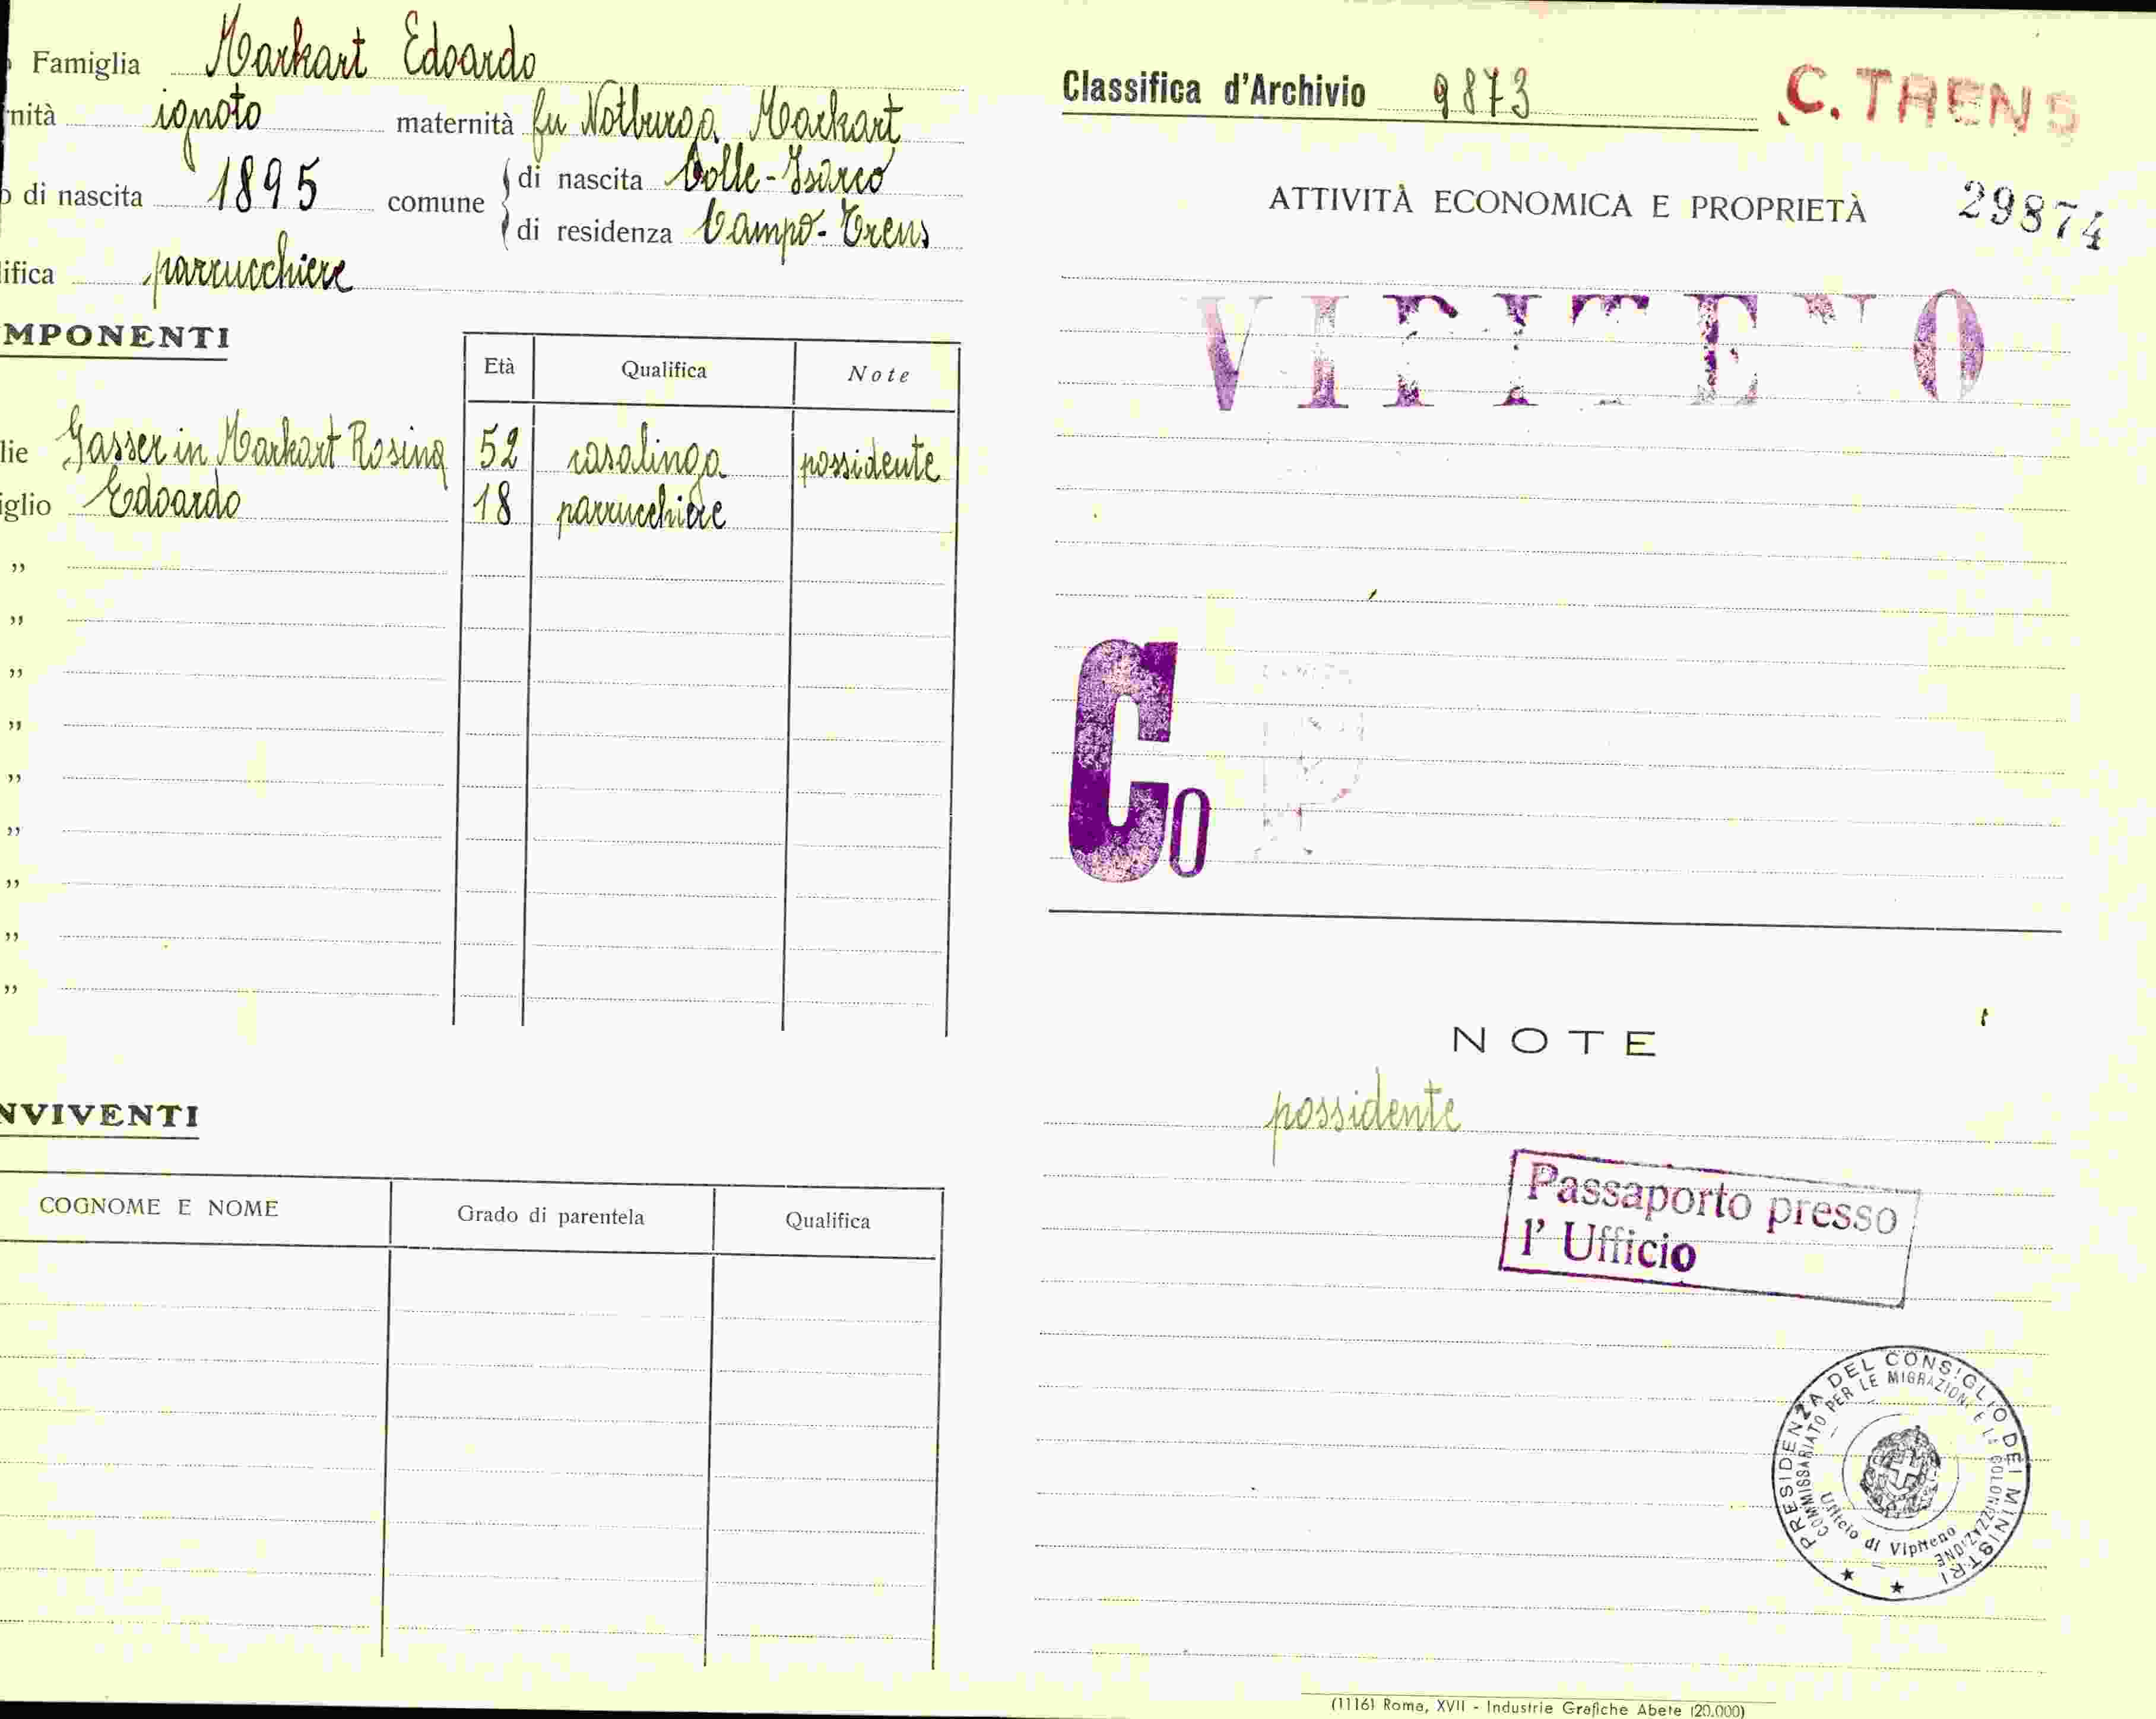 Famiglia Markart Edoardo
nità ignoto maternità fu Notburga Markart
o di nascita 1895 comune di nascita Colle-Isarco
di residenza Campo-Trens
ifica parrucchiere
MPONENTI
Età Qualifica Note
lie Gasser in Markart Rosina 52 casalinga possidente
iglio Edoardo 18 parrucchiere
"
"
"
"
"
"
"
"
"
NVIVENTI
COGNOME E NOME Grado di parentela Qualifica
Classifica d'Archivio 9873 C. TRENS
ATTIVITÀ ECONOMICA E PROPRIETÀ 29874
VIPITENO
Co P
NOTE
possidente
Passaporto presso
l' Ufficio
PRESIDENZA DEL CONSIGLIO DEI MINISTRI
COMMISSARIATO PER LE MIGRAZIONI E LA COLONIZZAZIONE
Ufficio di Vipiteno
(1116) Roma, XVII - Industrie Grafiche Abete (20.000)